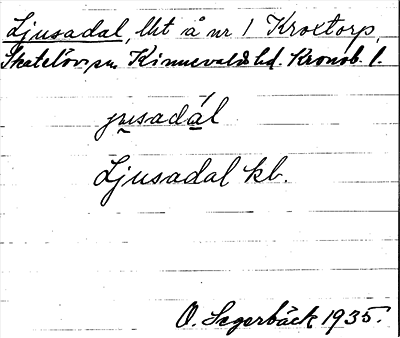 Ljusadal, lht å nr 1 Kroxtorp,
Skatelövs sn Kinnevalds hd. Kronob. l.
jusadál
Ljusadal kb.
O. Segerbäck 1935.